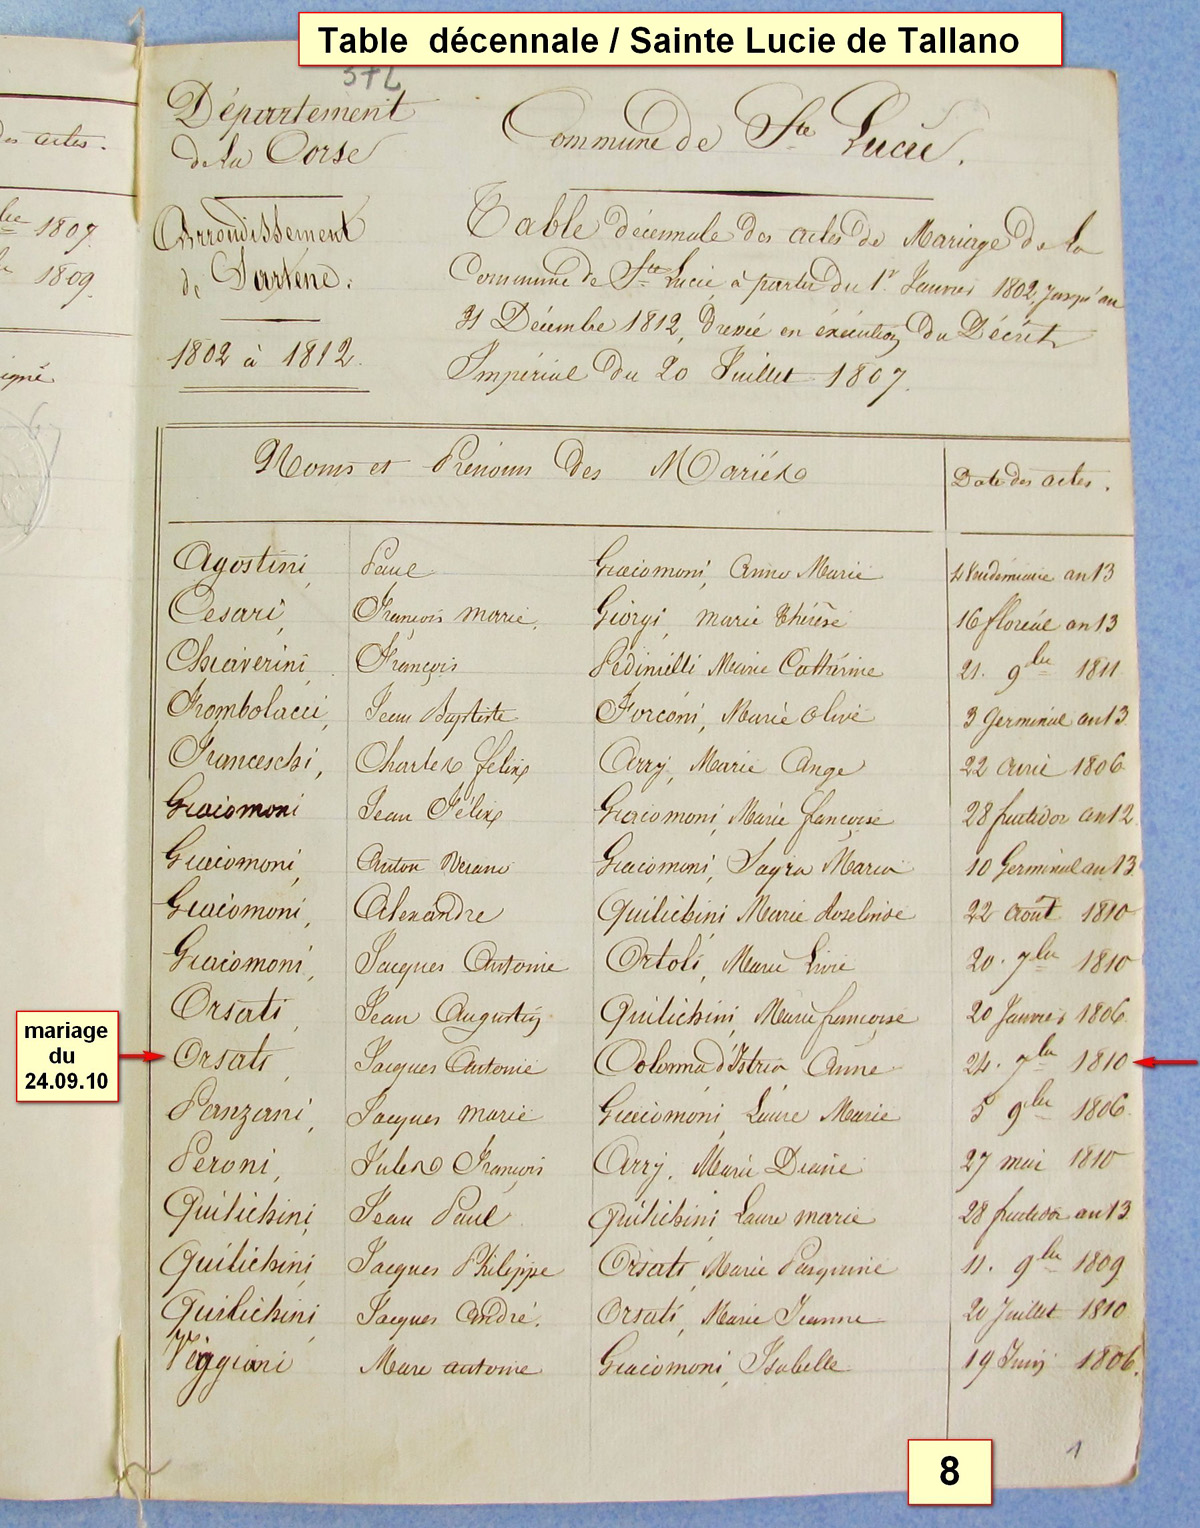 Table décennale / Sainte Lucie de Tallano
STL
Département
de la Corse
Commune de Ste Lucie.
Arrondissement
de Sartène.
1802 à 1812.
Table décennale des actes de Mariage de la
Commune de Ste Lucie à partir du 1r Janvier 1802, jusqu'au
31 Décembre 1812, dressée en exécution du Décret
Impérial du 20 Juillet 1807.
des actes.
bre 1807.
1809.
signé
Noms et Prénoms des Mariés Date des actes.
Agostini, Paul Giacomoni, Anne Marie 4 Vendémiaire an 13
Cesari, François Marie, Giorgi, Marie Thérèse 16 floréal an 13
Chiaverini, François Pedinielli Marie Cathérine 21. 9bre 1811
Frombolacci, Jean Baptiste Forconi, Marie Olive 3 Germinal an 13
Franceschi, Charles félix Arrj, Marie Ange 22 Avril 1806
Giacomoni Jean Félix Giacomoni, Marie françoise 28 fructidor an 12
Giacomoni, Anton Giacomoni, Maria 10 Germinal an 13
Giacomoni, Alexandre Quilichini Marie 22 Août 1810
Giacomoni, Jacques Antoine Ortoli, Marie Livie 20. 7bre 1810
Orsati, Jean Augustin Quilichini, Marie françoise 20 Janvier 1806
mariage
du
24.09.10
Orsati, Jacques Antoine Colonna d'Istria Anne 24. 7bre 1810
Panzani, Jacques Marie Giacomoni, Laure Marie 5 9bre 1806
Peroni, Jules François Arrj, Marie Diane 27 mai 1810
Quilichini, Jean Paul Quilichini, Laure Marie 28 fructidor an 13
Quilichini, Jacques Philippe Orsati, Marie Pasquine 11. 9bre 1809
Quilichini, Jacques André. Orsati, Marie Jeanne 20 Juillet 1810
Veggiani Marc antoine Giacomoni, Isabelle 19 Juin 1806.
8
1